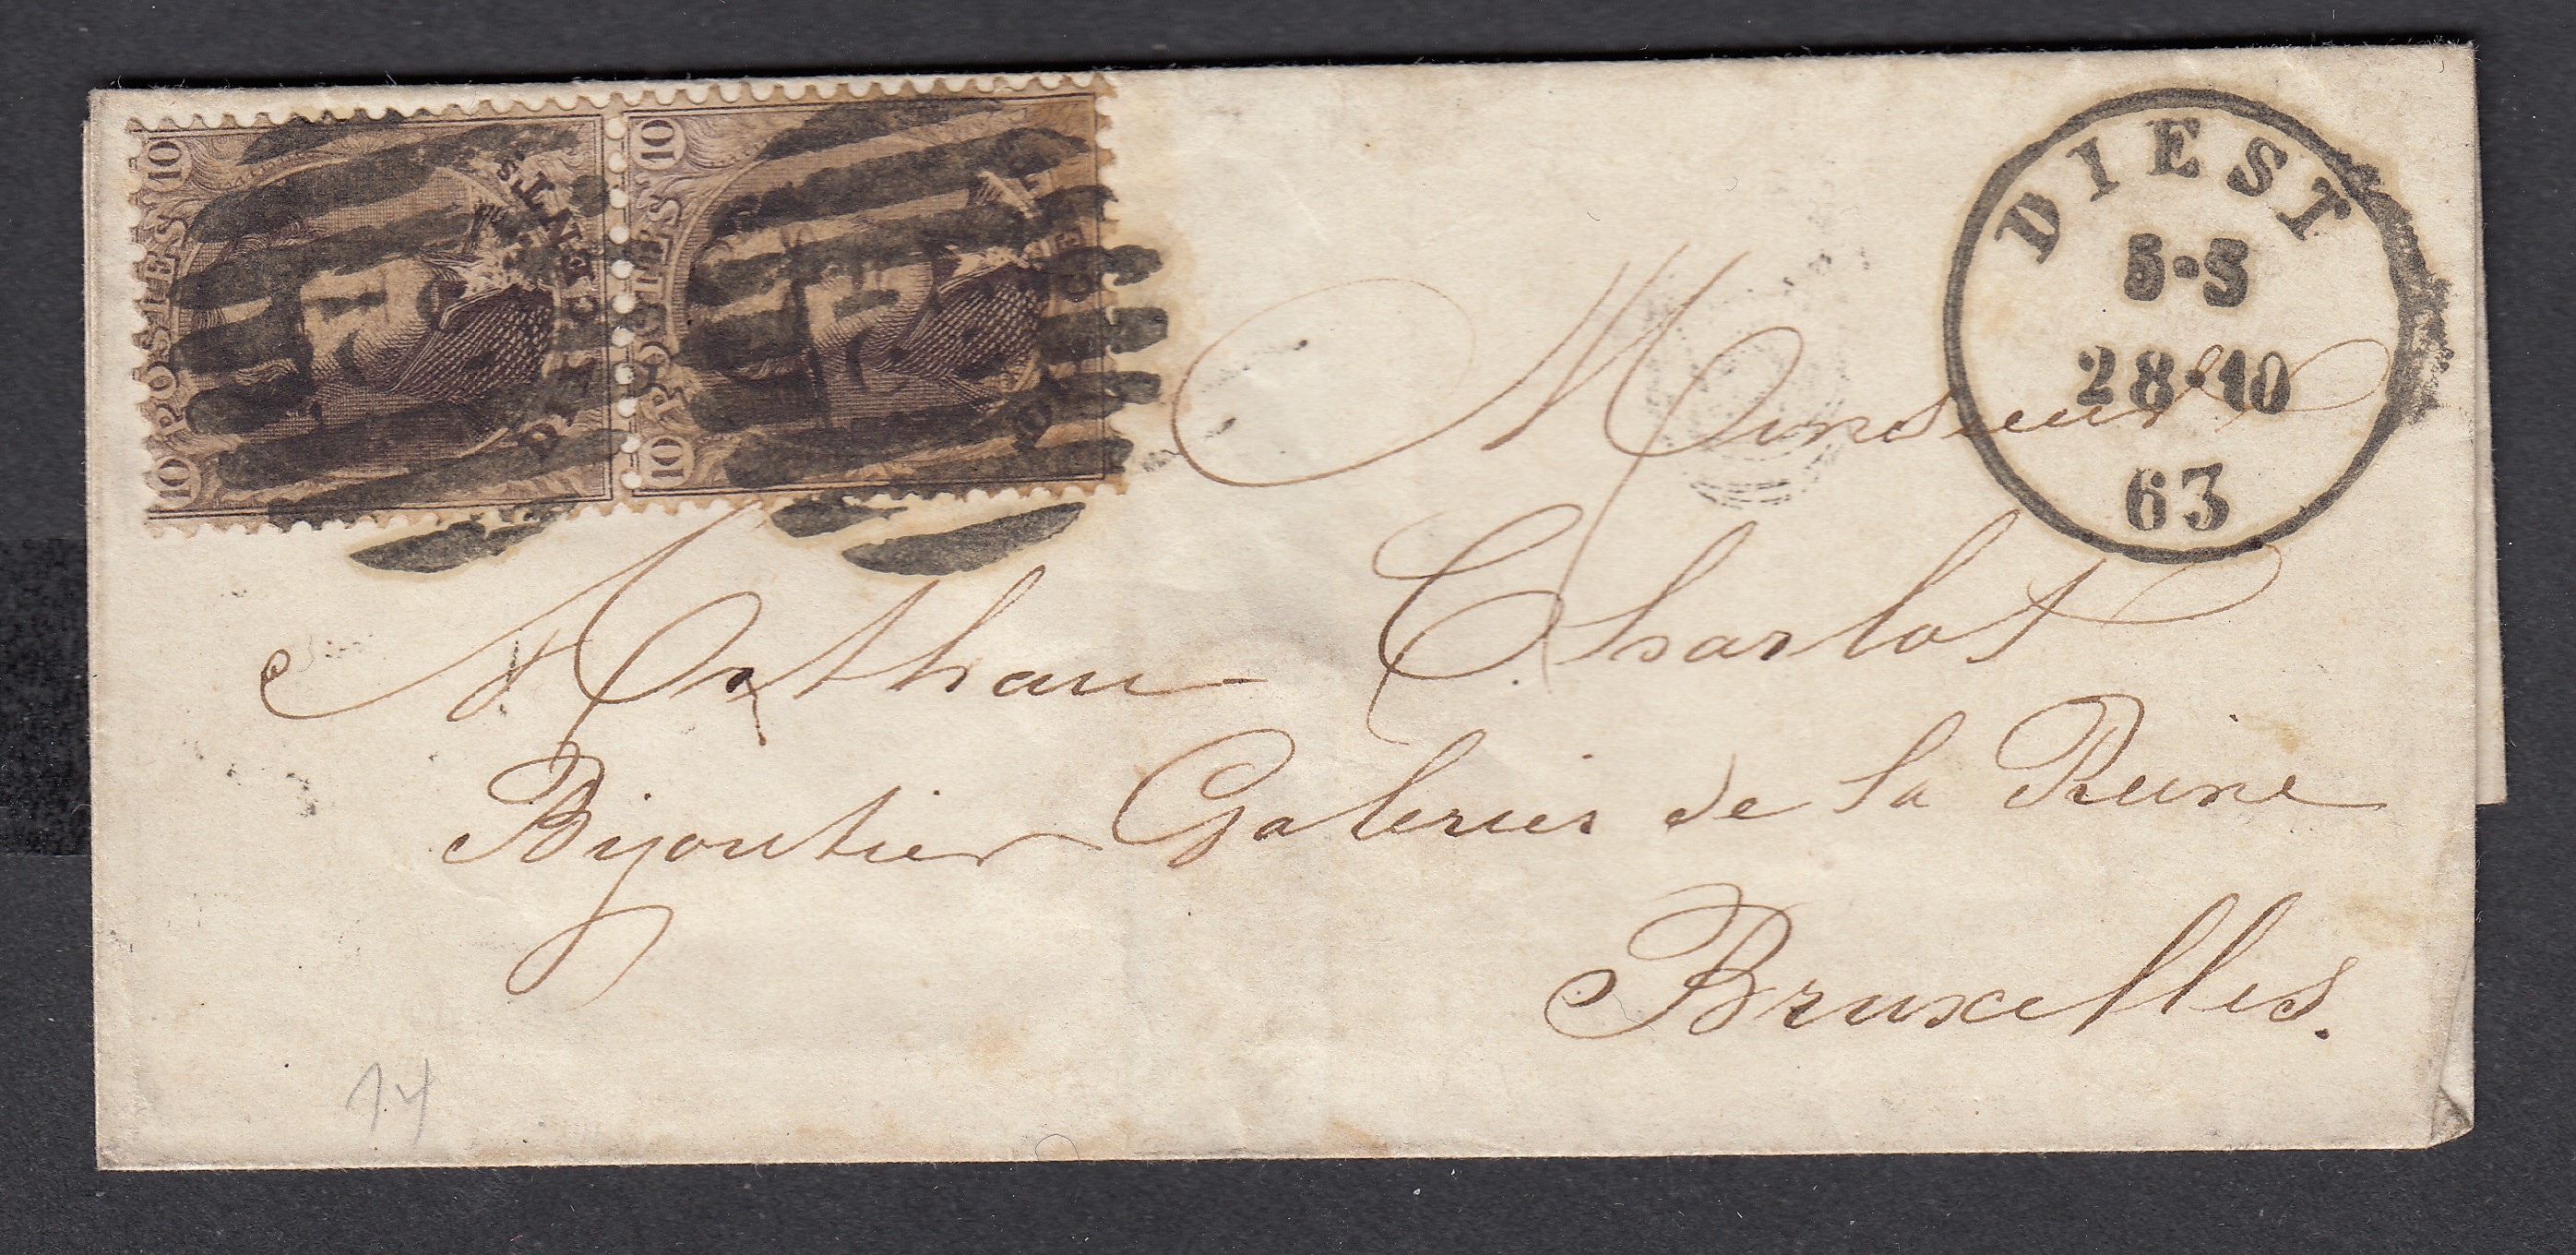 10 POSTES 10
DIX CENTS
10 POSTES 10
DIEST
5-S
28·10
63
Monsieur
Charlot
Bijoutier Galeries de la Reine
Bruxelles.
14